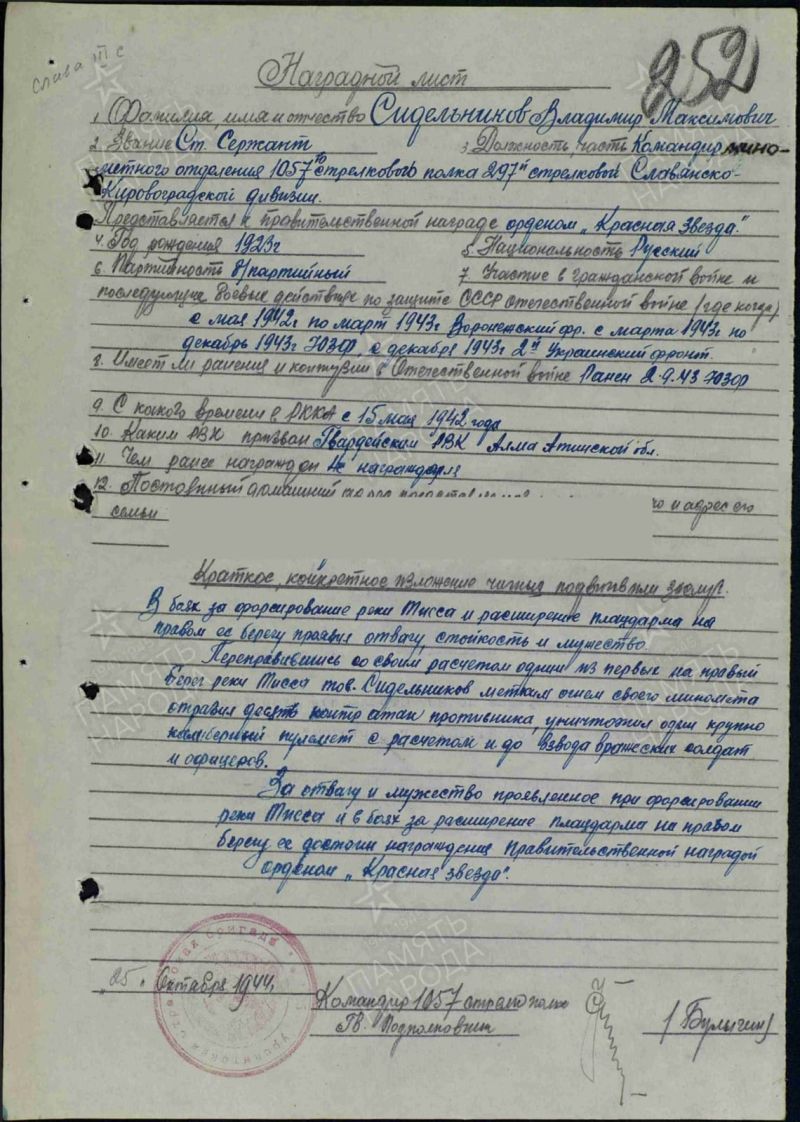 Слава III с
252
Наградной лист
1. Фамилия, имя и отчество Сидельников Владимир Максимович
2. Звание Ст. Сержант 3. Должность, часть Командир мино-
метного отделения 1057го стрелкового полка 297й стрелковой Славянско-
Кировоградской дивизии.
Представляется к правительственной награде орденом „Красная Звезда."
4. Год рождения 1923г 5. Национальность Русский
6. Партийность б/партийный 7. Участие в гражданской войне и
последующие боевые действиях по защите СССР отечественной войне (где когда)
с мая 1942г по март 1943г Воронежский фр. с марта 1943г по
декабрь 1943г ЮЗФР, с декабря 1943г 2й Украинский фронт.
8. Имеет ли ранения и контузии в Отечественной войне Ранен 2.9.43 ЮЗФР
9. С какого времени в РККА с 15 мая 1942 года
10. Каким РВК призван Гвардейским РВК Алма Атинской обл.
11. Чем ранее награжден Не награждался
12. Постоянный домашний и адрес его
семьи
Краткое, конкретное изложение личных подвигов или заслуг.
В боях за форсирование реки Тисса и расширение плацдарма на
правом ее берегу проявил отвагу, стойкость и мужество.
Переправившись со своим расчетом одним из первых на правый
берег реки Тисса тов. Сидельников метким огнем своего миномета
отразил десять контр атак противника, уничтожил один крупно
калиберный пулемет с расчетом и до взвода вражеских солдат
и офицеров.
За отвагу и мужество проявленное при форсировании
реки Тисса и в боях за расширение плацдарма на правом
берегу ее достоин награждения правительственной наградой
орденом „Красная звезда".
"25" Октября 1944г
Командир 1057 стрелк полка
Гв. Подполковник
/Булыгин/
ПАМЯТЬ
НАРОДА